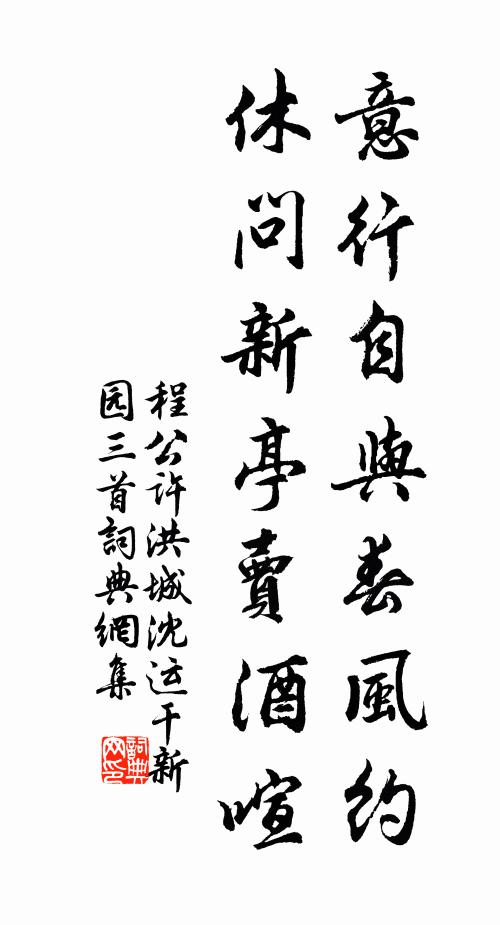 意行自與春風約
休問新亭賣酒喧
程公許洪城沈运干新
园三首詞典網集
詞典
网印